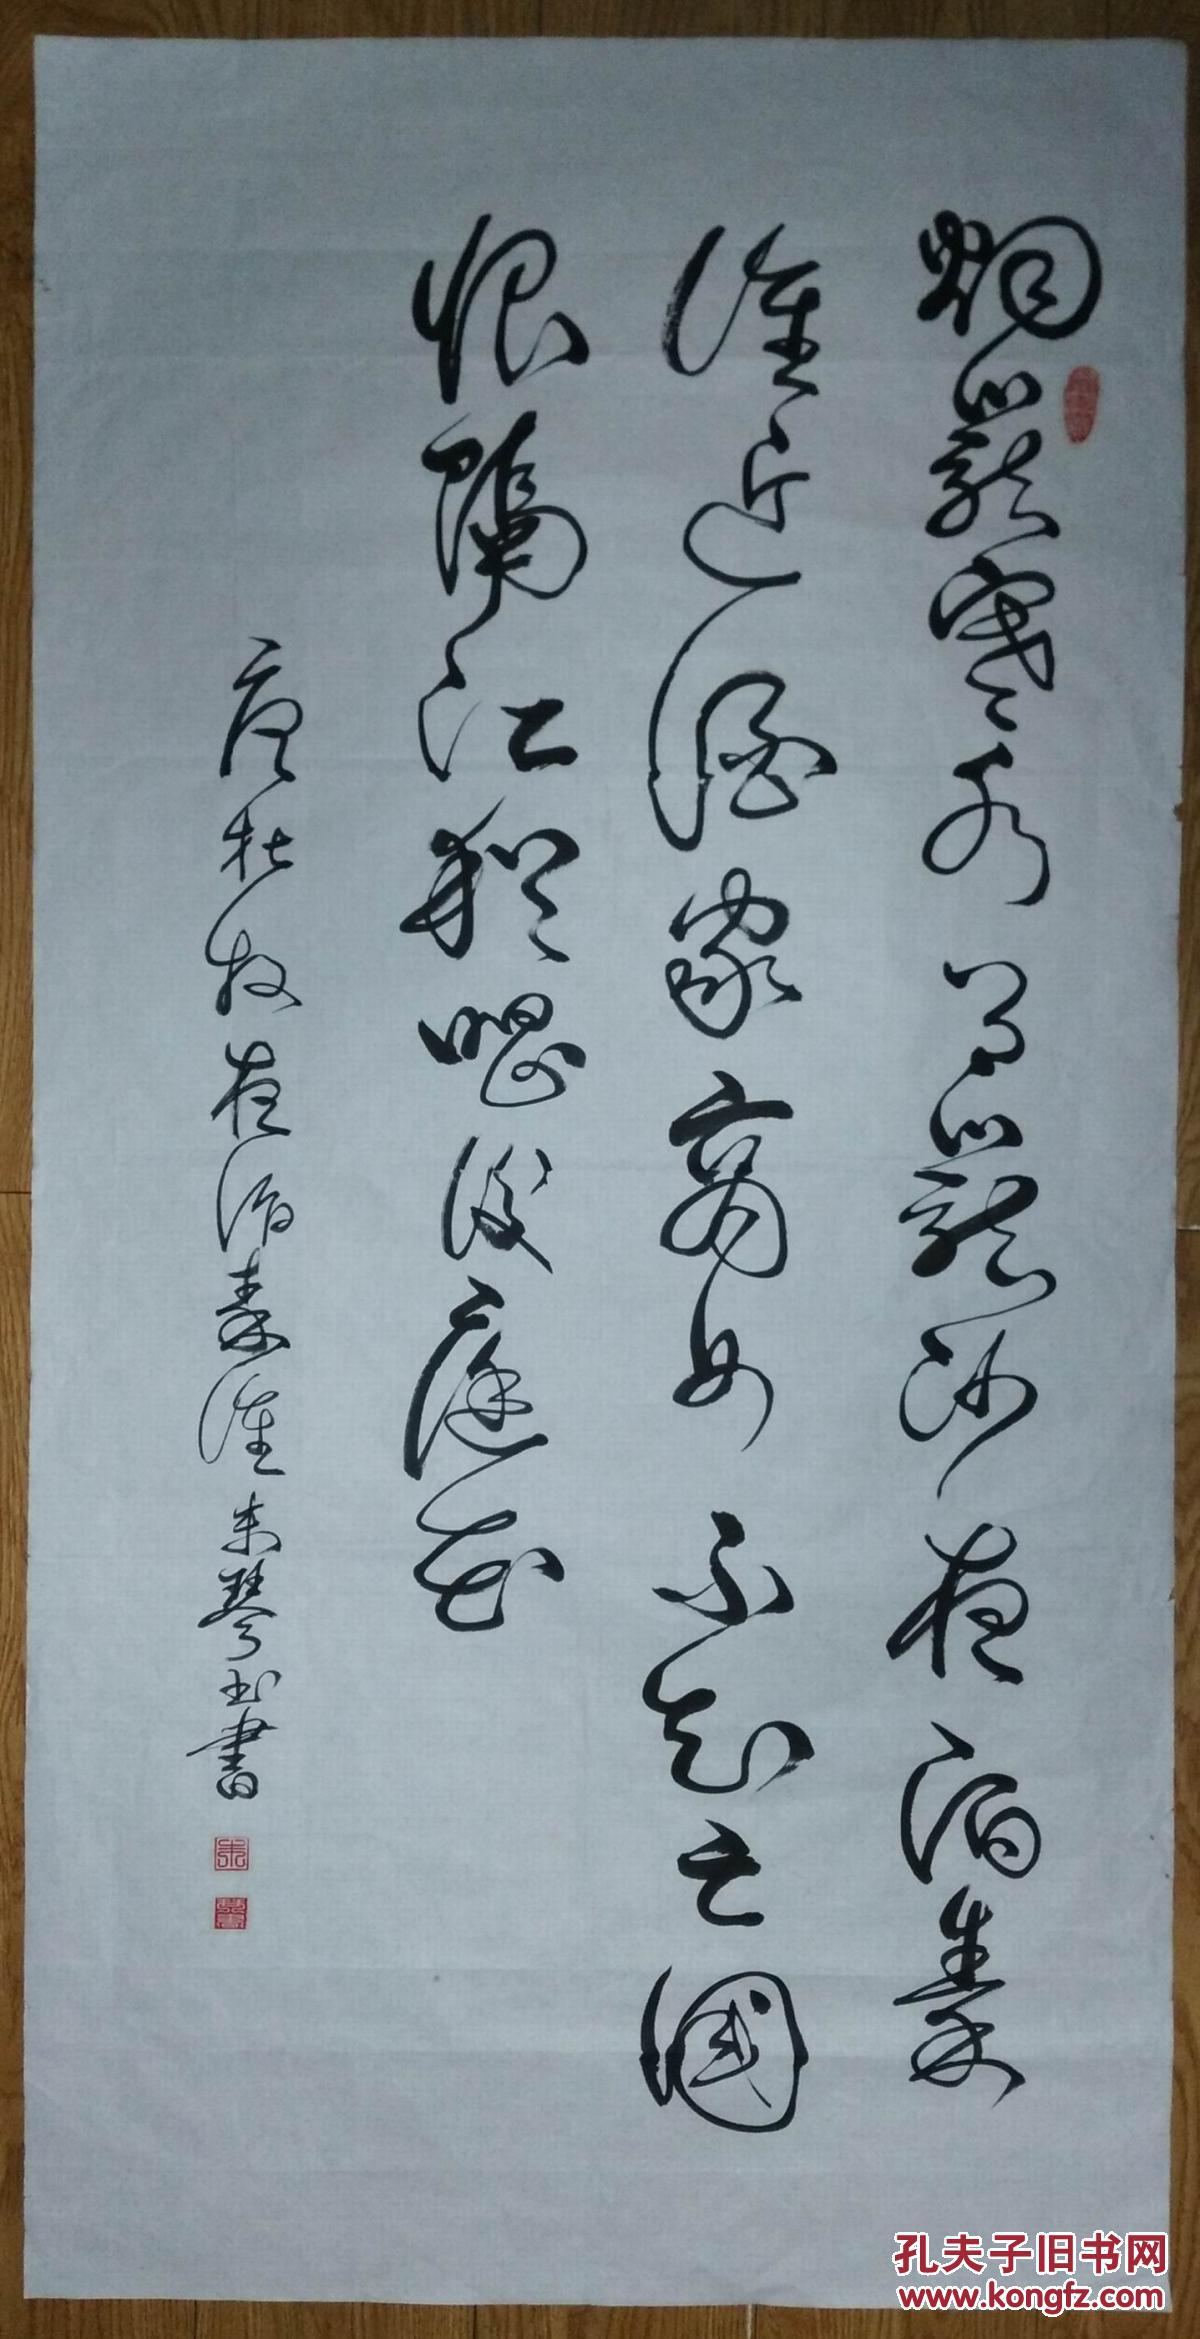 烟籠寒水月籠沙夜泊秦
淮近酒家商女不知亡國
恨隔江猶唱後庭花
唐杜牧夜泊秦淮朱琴玉書
孔夫子旧书网
www.kongfz.com